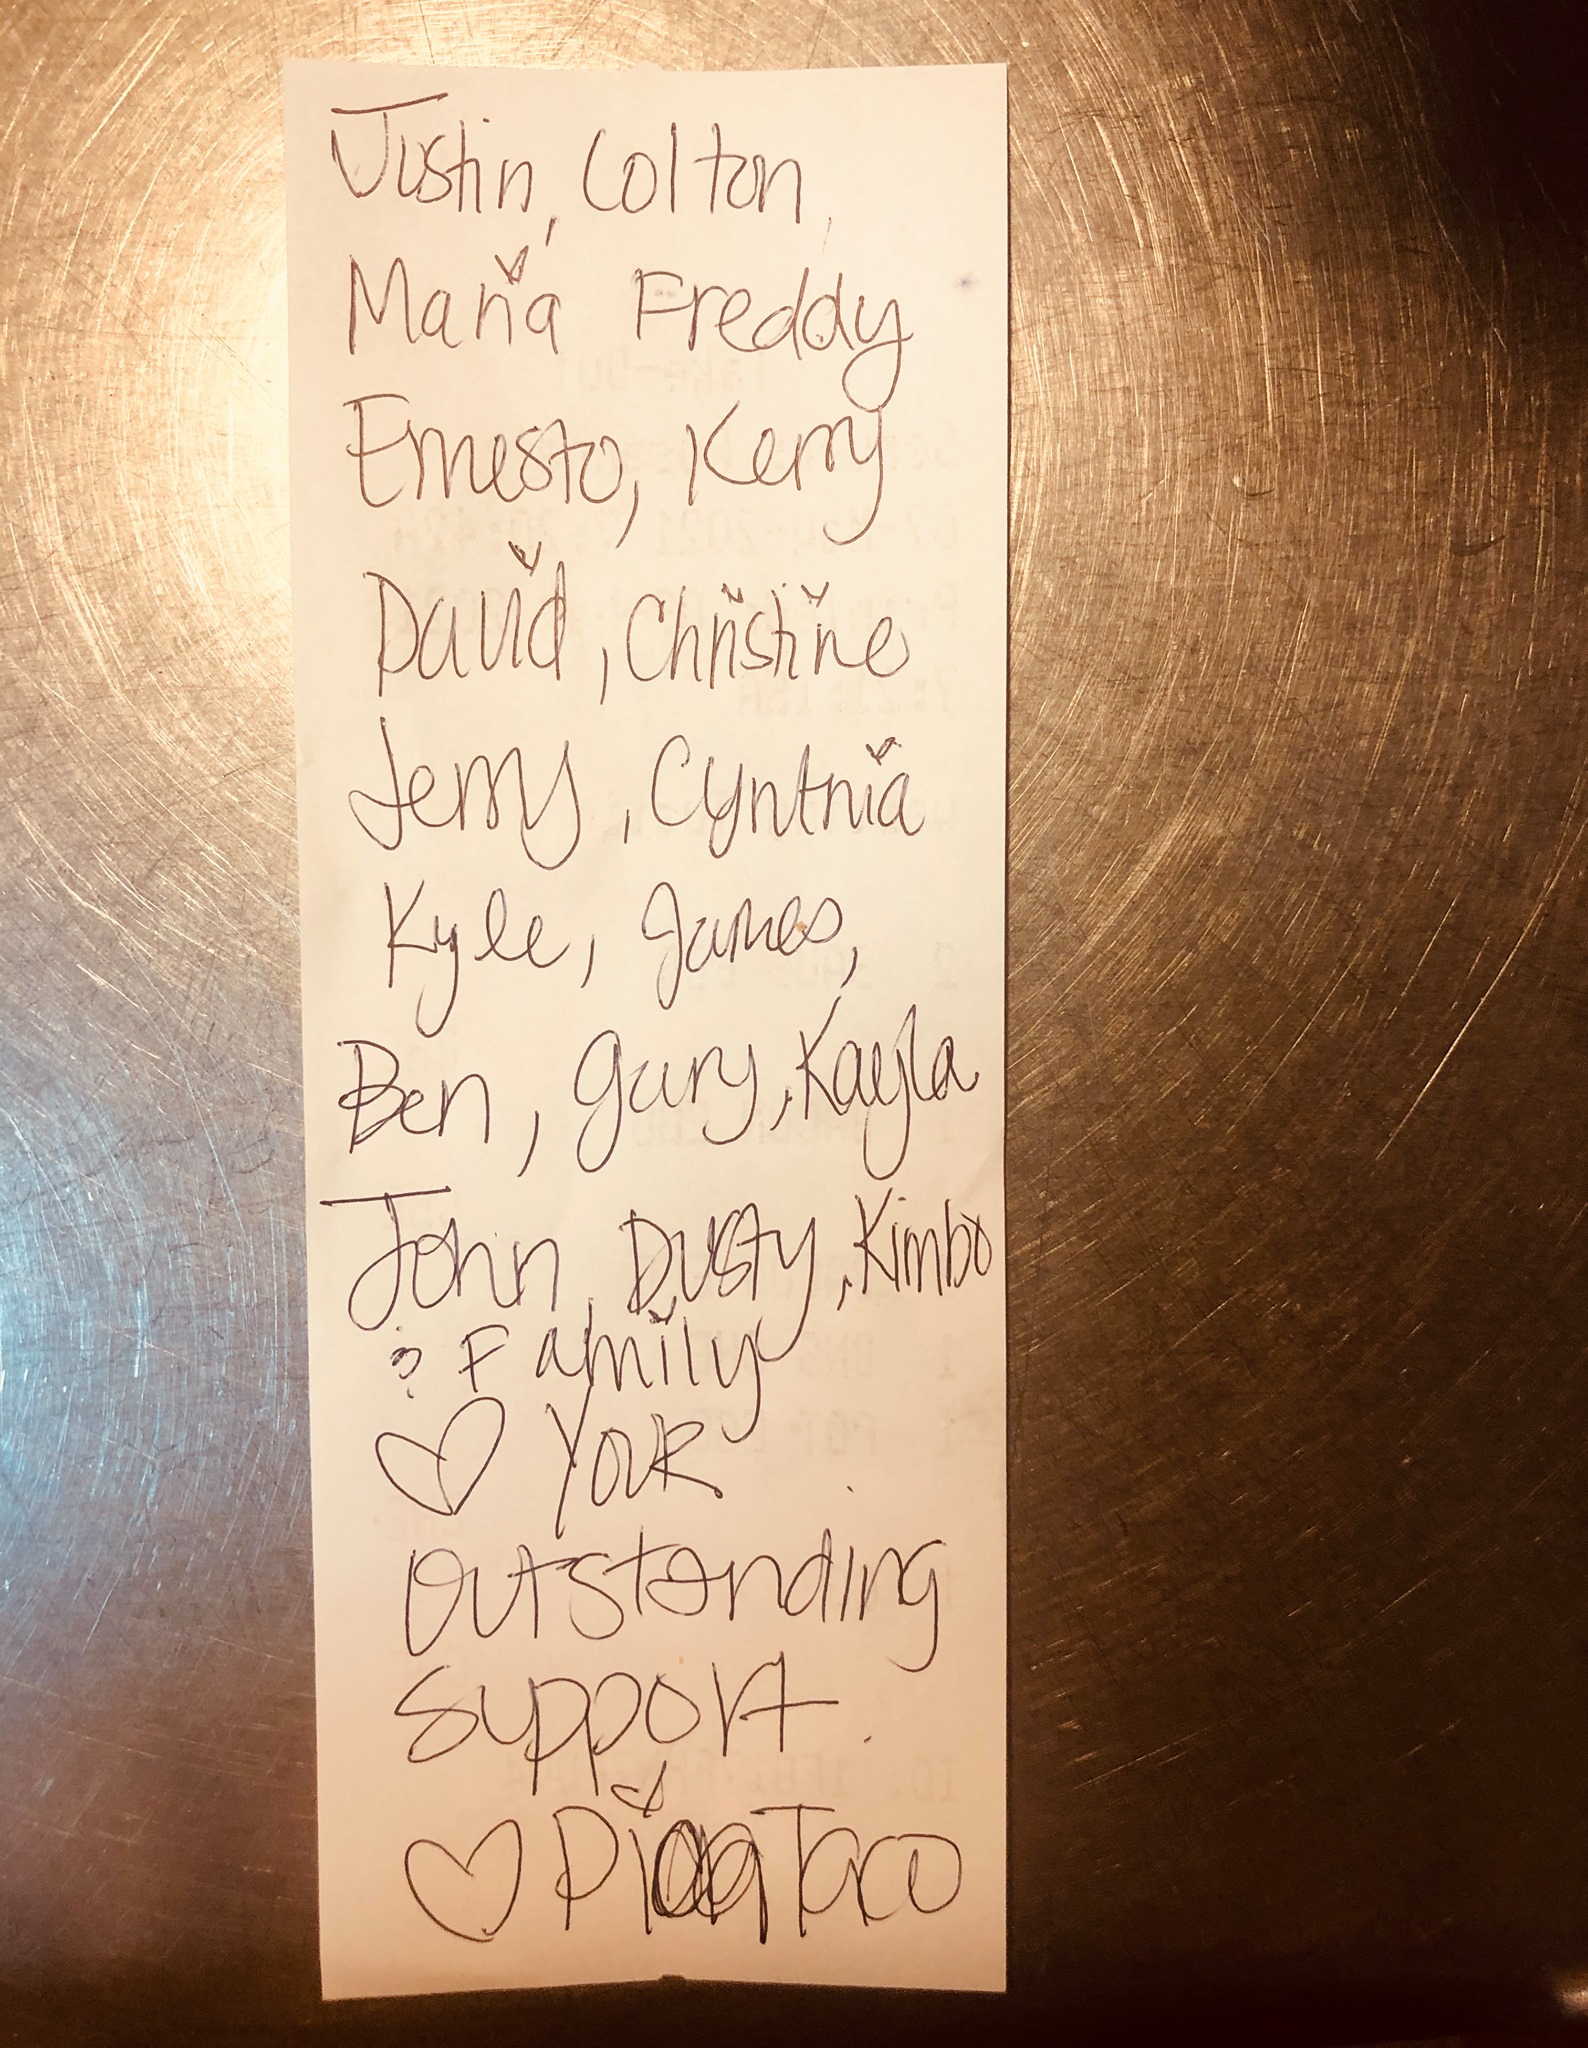 Justin, Colton,
Maria Freddy
Ernesto, Kerry
David, Christine
Jerry, Cynthia
Kyle, James,
Ben, Gary, Kayla
John, Dusty, Kimbo
& Family
♡ Your
Outstanding
Support.
♡ Taco